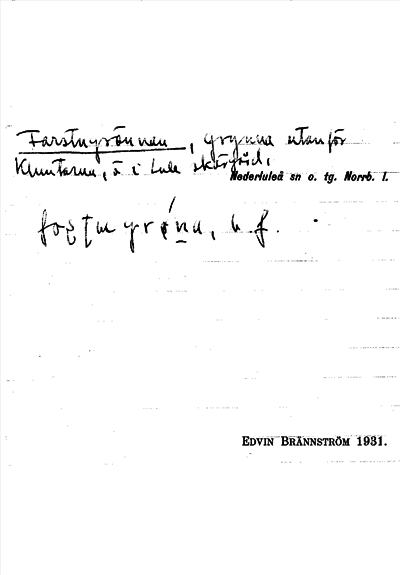 Farstugrönnan, grynna utanför
Kluntarna, ö i Lule skärgård.
Nederluleå sn o. tg. Norrb. l.
b. f.
EDVIN BRÄNNSTRÖM 1931.